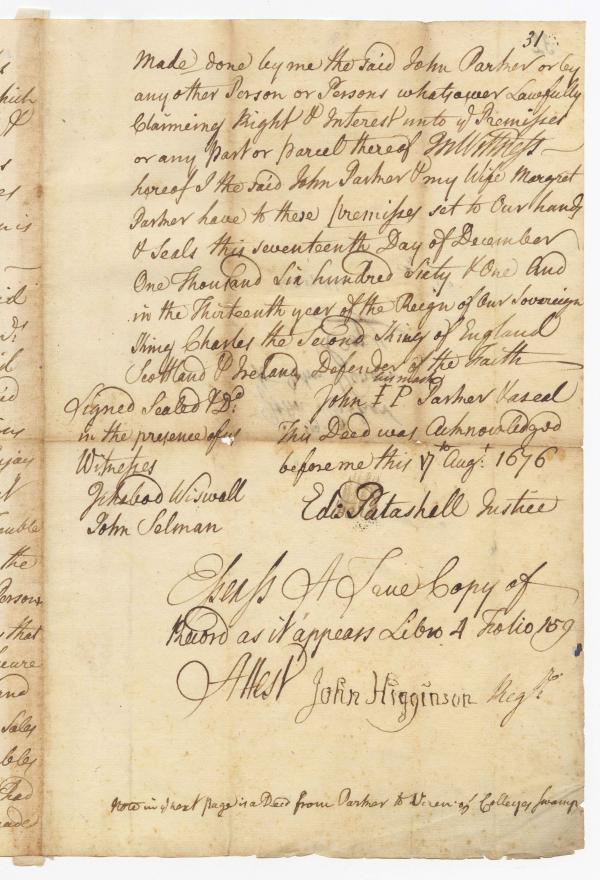 31
Made done by me the said John Parker or by
any other Person or Persons whatsoever Lawfully
Claiming Right & Interest unto ye Premisses
or any part or parcel thereof In Witness
hereof I the said John Parker & my Wife Margret
Parker have to these premisses set to Our hands
& Seals this seventeenth Day of December
One Thousand Six hundred Sixty & One And
in the Thirteenth year of the Reign of Our Sovereign
King Charles the Second King of England
Scotland & Ireland Defender of the Faith
his mark
John I P Parker &a seal
Signed Sealed & Dd
in the presence of us
Witnesses
Ichabod Wiswall
John Selman
This Deed was Acknowledged
before me this 17th Augt 1676
Edw Patashell Justice
Essex A True Copy of
Record as it appears Libro 4 Folio 159
Attest John Higginson Regr
Note in ye next page is a Deed from Parker to of Colleges Swamp
which
&
es
is
id
said
the
Person
that
and
Sales
had
made